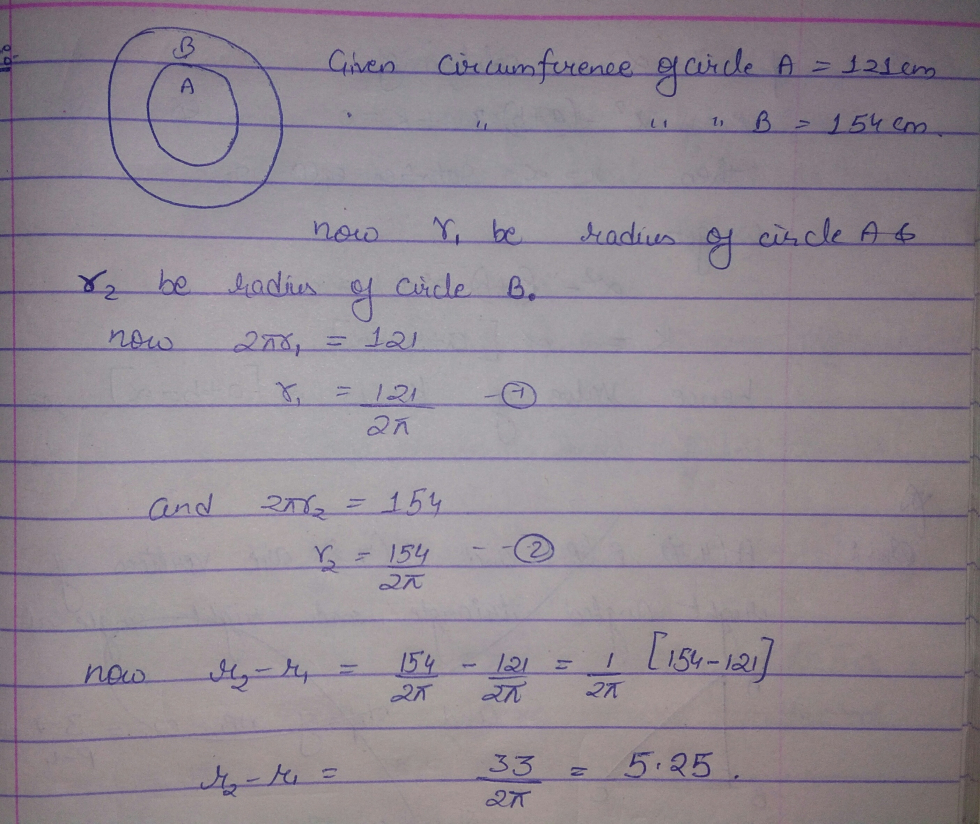 B
A
Given Circumference of circle A = 121 cm
" " " B = 154 cm.
now r₁ be radius of circle A &
r₂ be radius of circle B.
now 2πr₁ = 121
r₁ = 121/2π - ①
and 2πr₂ = 154
r₂ = 154/2π - - ②
now r₂-r₁ = 154/2π - 121/2π = 1/2π [154-121]
r₂-r₁ = 33/2π = 5.25.